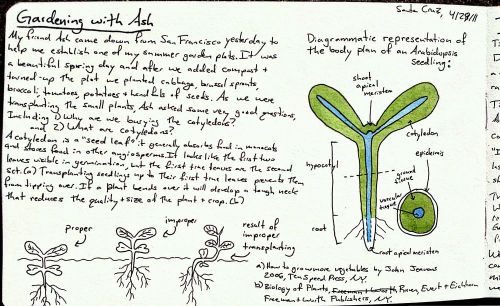 Santa Cruz, 4/28/11
Gardening with Ash
My friend Ash came down from San Francisco yesterday to
help me establish one of my summer garden plots. It was
a beautiful spring day and after we added compost +
turned-up the plot we planted cabbage, brussel sprouts,
broccoli, tomatoes, potatoes + of seeds. As we were
transplanting the small plants, Ash asked some very good questions,
Including 1) why are we burying the cotyledons?
and 2) What are cotyledons?
A cotyledon is a "seed leaf": it generally absorbs food in monocots
and stores food in other angiosperms. It looks like the first two
leaves visible in germination, but the first true leaves are the second
set. (a) Transplanting seedlings up to their first true leaves prevents them
from tipping over. If a plant bends over it will develop a tough neck
that reduces the quality + size of the plant + crop. (b)
proper
improper
result of
improper
transplanting
Diagrammatic representation of
the body plan of an Arabidopsis
seedling:
shoot
apical
meristem
cotyledon
hypocotyl
epidermis
ground
tissue
vascular
tissue
root
root apical meristem
a) How to grow more vegetables by John Jeavons
2006, Ten Speed Press, NY.
b) Biology of Plants, Raven, Evert + Eichhorn
Freeman + Worth Publishers, NY